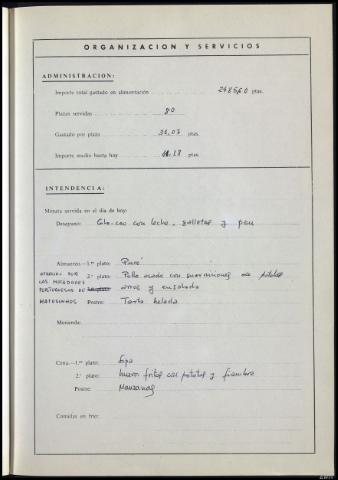 ORGANIZACION Y SERVICIOS
ADMINISTRACION:
Importe total gastado en alimentación ptas.
Plazas servidas 80
Gastado por plaza 31,07 ptas.
Importe medio hasta hoy 18 ptas.
INTENDENCIA:
Minuta servida en el día de hoy:
Desayuno: Cola-cao con leche, galletas y pan
Almuerzo.—1.er plato: Puré
2.º plato: Pollo asado con guarniciones de patatas
arroz y ensalada
POR
LOS MIRADORES
PORTUGUESES DE
MATESINHOS
Postre: Tarta helada
Merienda:
Cena.—1.er plato: Sopa
2.º plato: huevos fritos con patatas y fiambre
Postre: Manzanas
Comidas en frío: